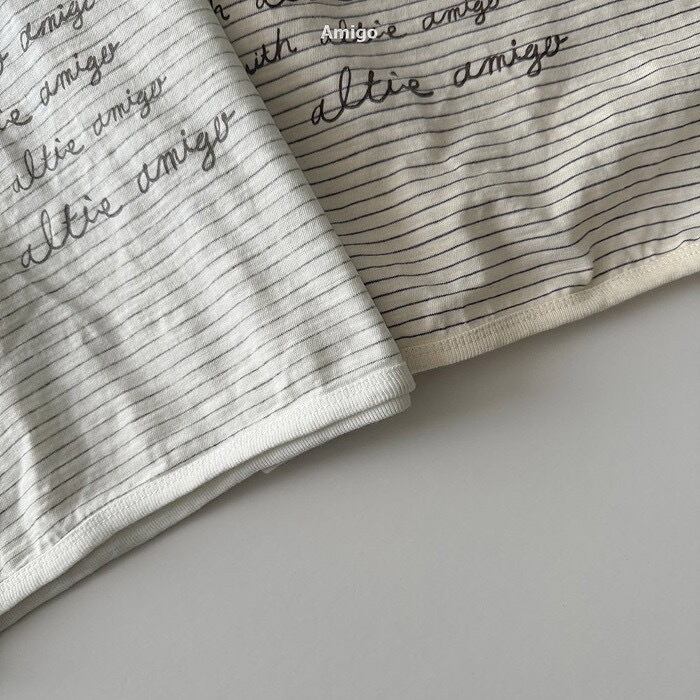 Amigo
amigo
amigo
altie amigo
altie amigo
with altie amigo
altie amigo